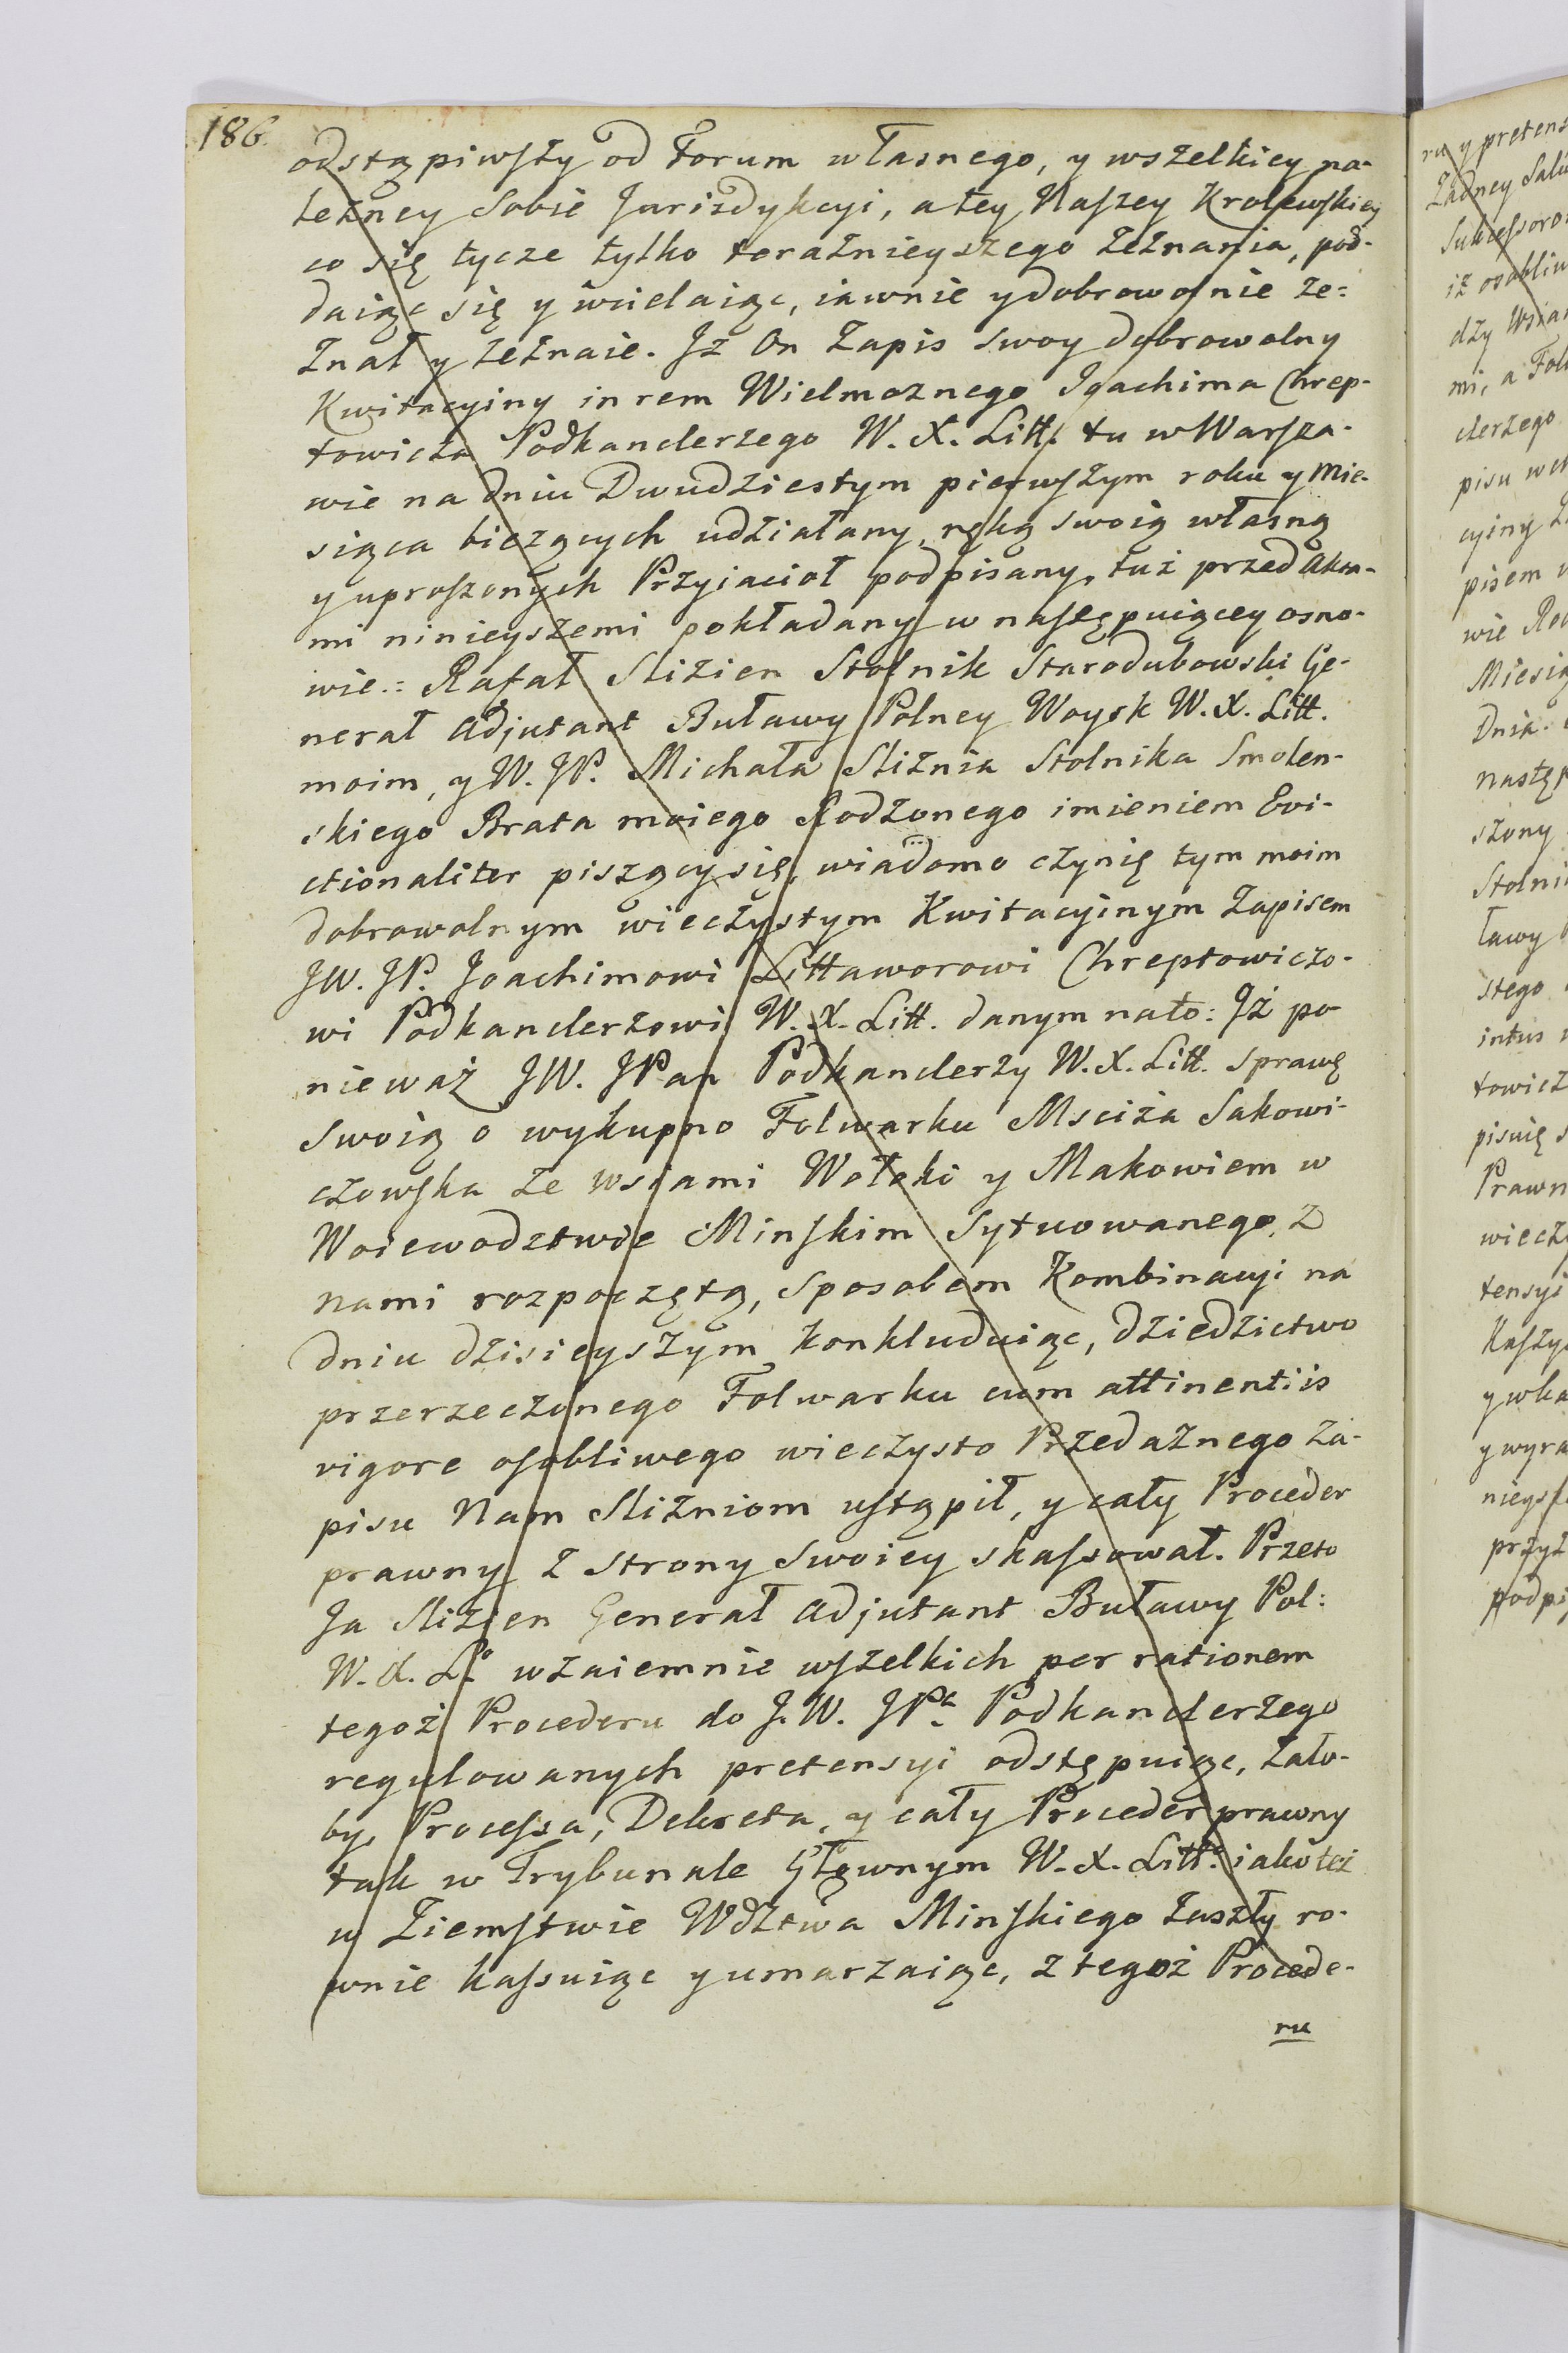 186.
odstąpiwszy od Forum własnego, y wszelkiey na-
leżney Sobie Jurisdykcyi, a tey Naszey Krolewskiey
co się tycze tylko teraznieyszego Zeznania, pod-
daiąc się y wcielaiąc, iawnie y dobrowolnie ze=
znał y zeznaie. Jż On Zapis swoy dobrowolny
Kwitacyiny in rem Wielmoznego Joachima Chrep-
towicza Podkanclerzego W. X. Litt. tu w Warsza-
wie na dniu Dwudziestym pierwszym roku y Mie-
siąca bieżących udziałany, ręką swoią własną
y uproszonych Przyiacioł podpisany, tuż przed Akta-
mi ninieyszemi pokładany w następuiącey osno-
wie.= Rafał Slizien Stolnik Starodubowski Ge-
nerał Adjutant Buławy Polney Woysk W. X. Litt.
moim, y W. JP. Michała Sliznia Stolnika Smolen-
skiego Brata moiego Rodzonego imieniem Evi-
ctionaliter piszący się, wiadomo czynię tym moim
dobrowolnym wieczystym Kwitacyinym Zapisem
JW. JP. Joachimowi Littaworowi Chreptowiczo-
wi Podkanclerzowi W. X. Litt. danym na to: Jż po
nieważ JW. JPan Podkanclerzy W. X. Litt. sprawę
swoią o wykupno Folwarku Msciża Sakowi-
czowska ze wsiami Wołoki y Makowiem w
Woiewodztwie Minskim Sytuowanego, z
nami rozpoczętą, sposobem Kombinacyi na
dniu dzisieyszym konkluduiąc, dziedzictwo
przerzeczonego Folwarku cum attinentiis
vigore osobliwego wieczysto Przedażnego Za-
pisu Nam Slizniom ustąpił, y cały Proceder
prawny z strony swoiey skassował. Przeto
Ja Slizien Generał Adjutant Buławy Pol:
W. X. Lo wzaiemnie wszelkich per rationem
tegoż Procederu do J. W. JPa Podkanclerzego
regulowanych pretensyi odstępuiąc, Żało-
by, Processa, Dekreta, y cały Proceder prawny
tak w Trybunale Głownym W. X. Litt. iako też
w Ziemstwie Wdztwa Minskiego zaszły ro-
wnie kassuiąc y umarzaiąc, z tegoż Procede-
ru
ru y pretens
żadney
Sukcessoro
iż osobliw
mi, a Fol
clerzego
pisu
cyiny
pisem
wie
Miesią
Dnia
następ
szony
Stolni
ławy
stego
intus
towicz
pisuię s
Prawn
wieczy
tensyi
Kaszy
y wka
y wyra
nieysz
przyz
podpi